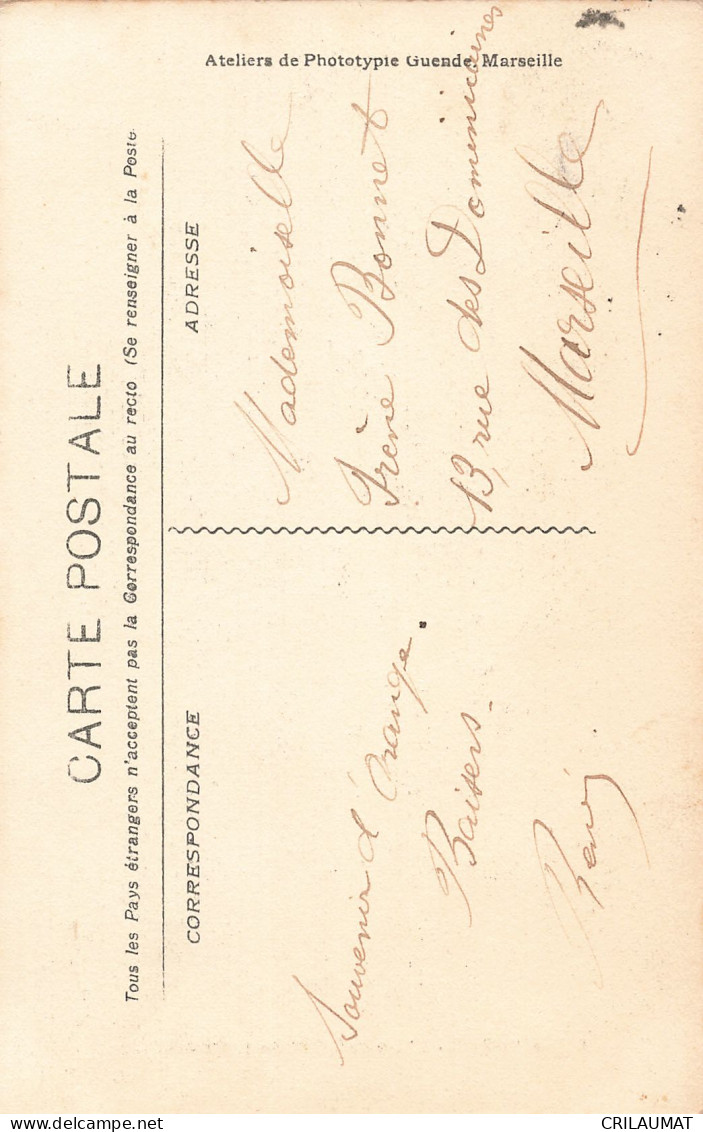 Ateliers de Phototypie Guende. Marseille
CARTE POSTALE
Tous les Pays étrangers n'acceptent pas la Correspondance au recto (Se renseigner à la Poste
CORRESPONDANCE
Souvenir d'Orange.
Baisers.
René
ADRESSE
Mademoiselle
Irène Bonnet
13, rue des Dominicaines
Marseille
www.delcampe.net
CRILAUMAT